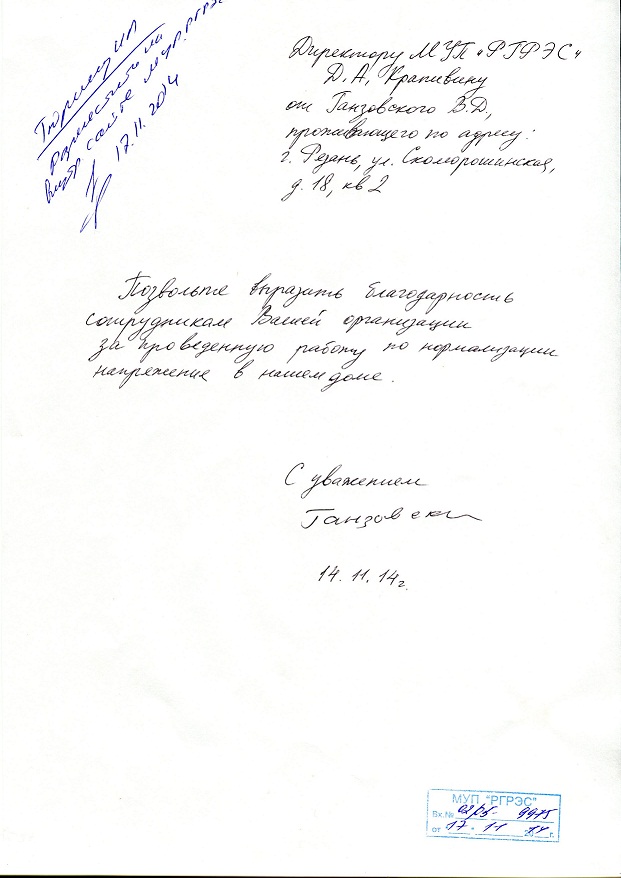 разместить на
сайте МУП РГРЭС
17.11.2014
Директору МУП «РГРЭС»
Д.А. Крапивину
от Ганзовского В.Д,
проживающего по адресу:
г. Рязань, ул. Скоморошинская,
д. 18, кв 2
Позвольте выразить благодарность
сотрудникам Вашей организации
за проведенную работу по нормализации
напряжения в нашем доме.
С уважением
Ганзовский
14.11.14г.
МУП "РГРЭС"
Вх.№ 02/05- 9975
от 17 - 11 2014г.